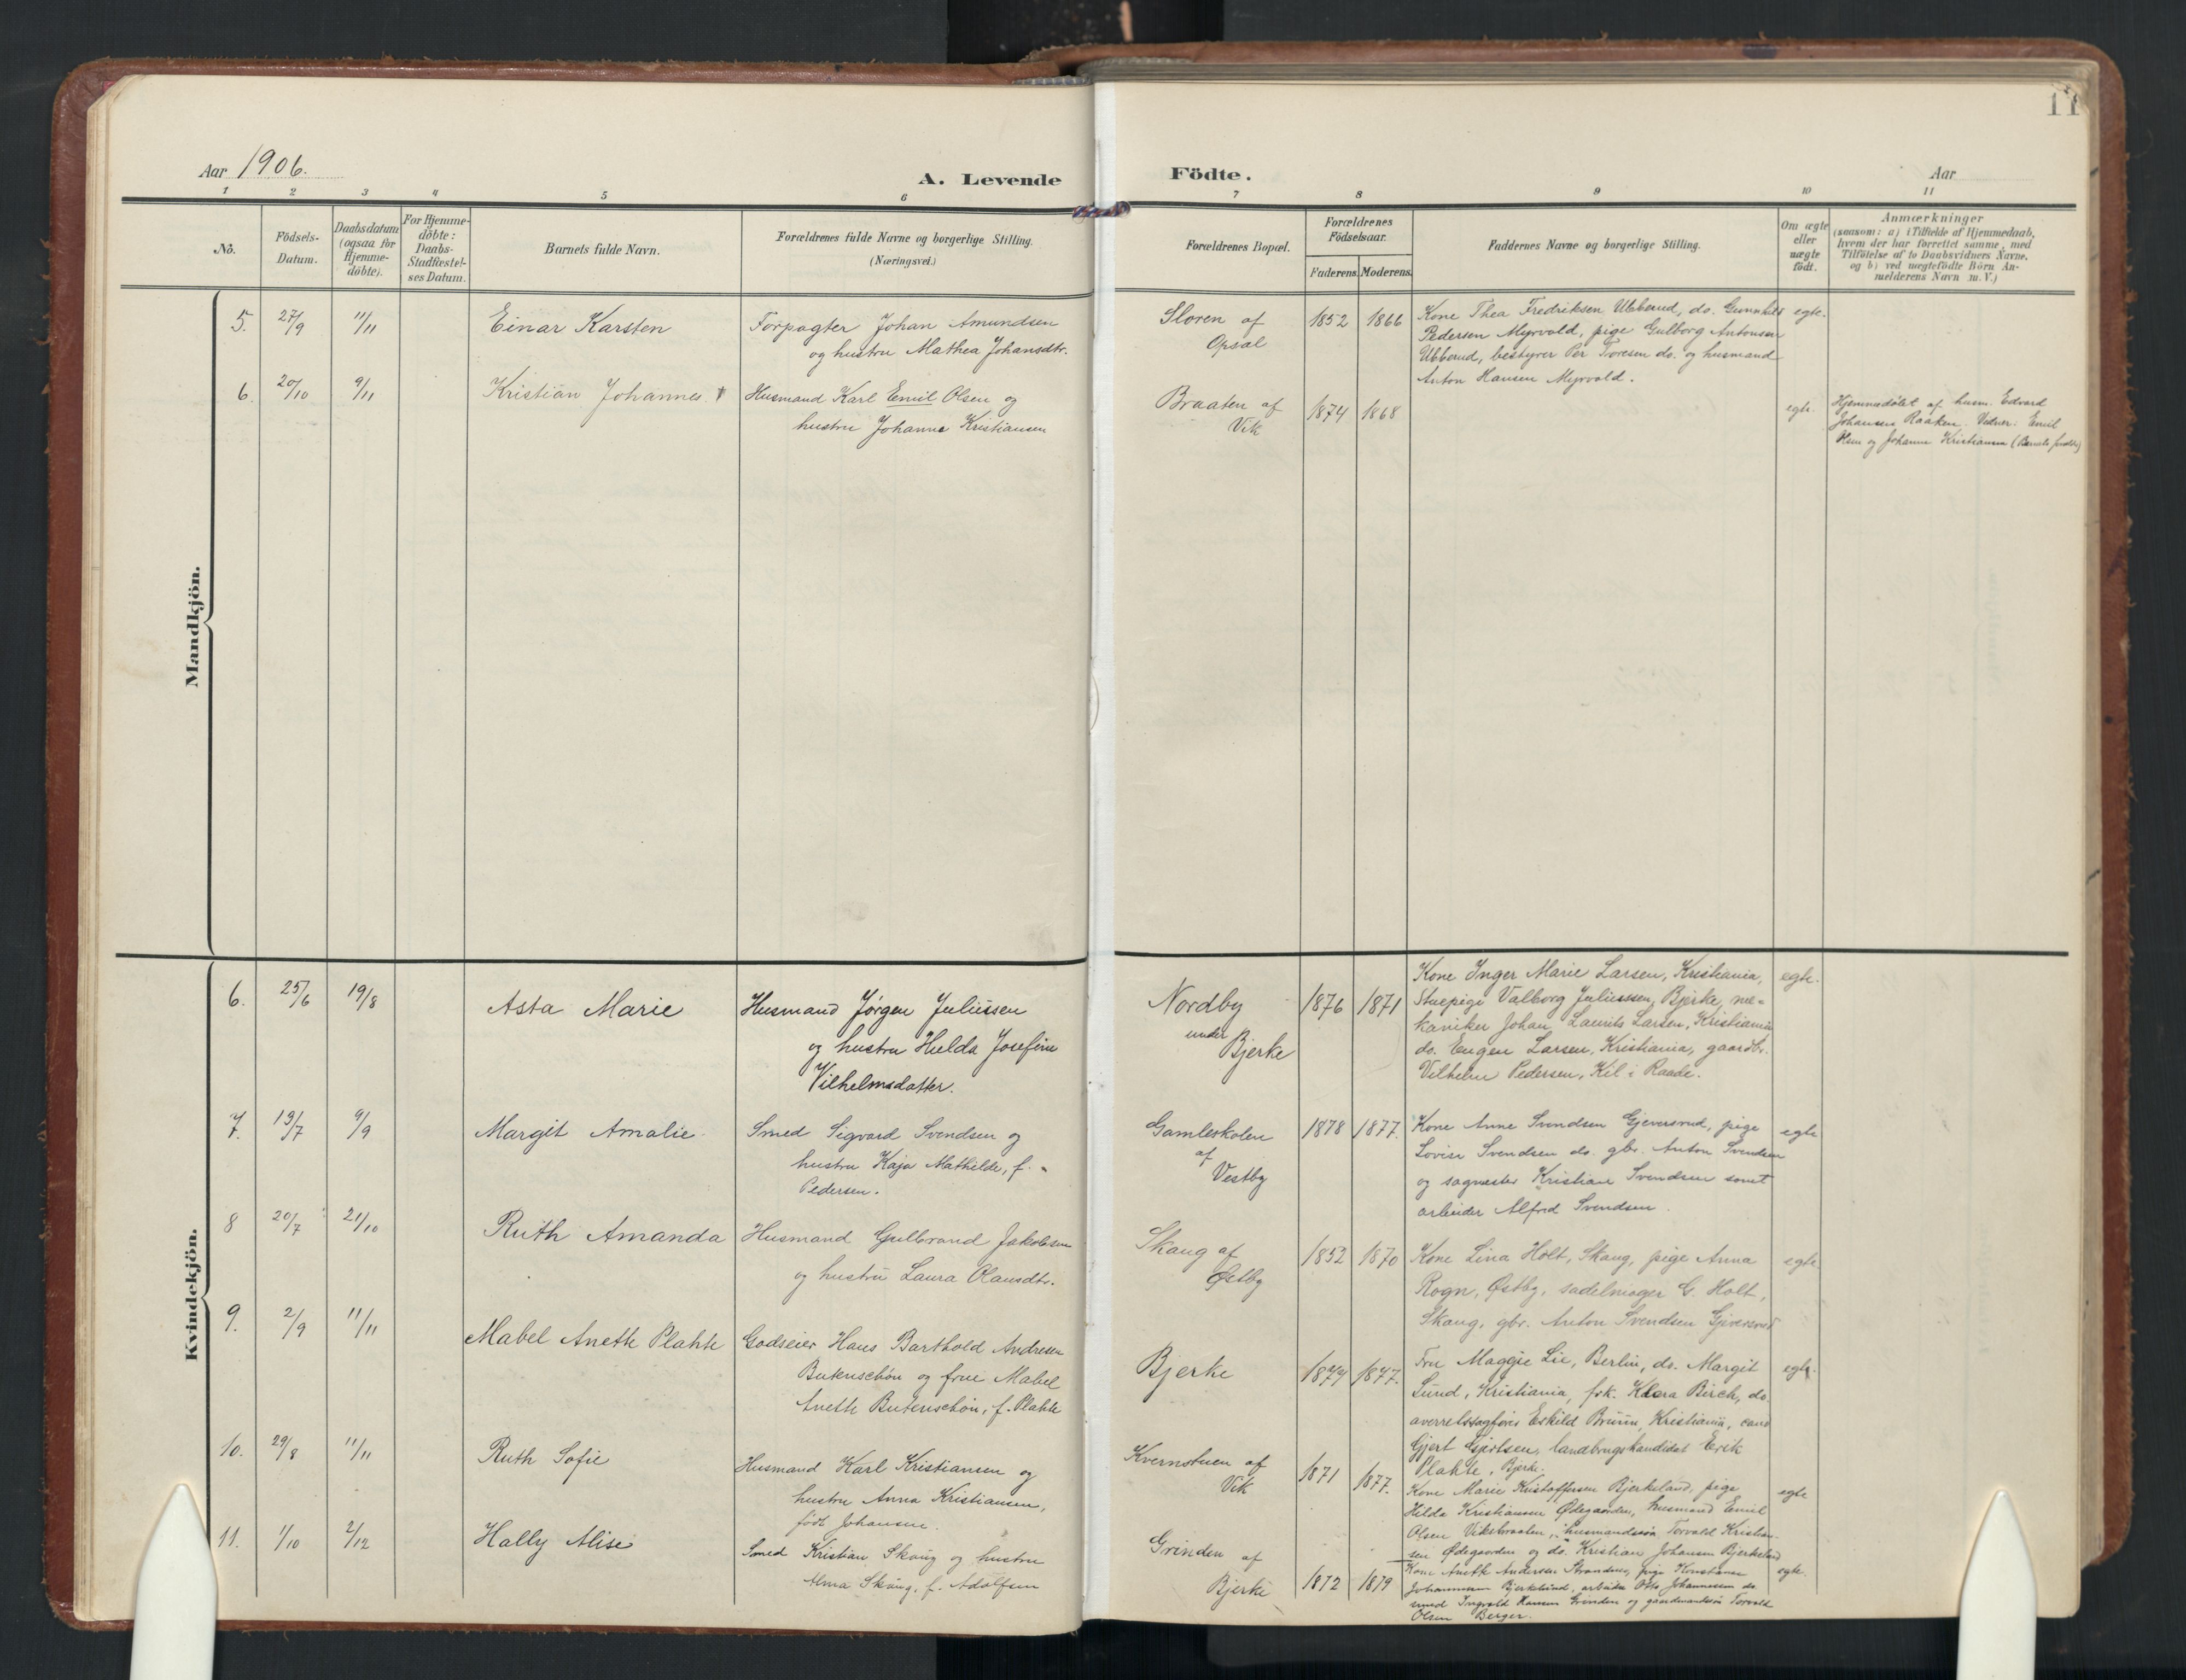 11
Aar 1906.
A. Levende Födte.
Aar
1 2 3 4 5 6 7 8 9 10 11
No.
Födsels-Datum.
Daabsdatum (ogsaa for Hjemme-döbte).
For Hjemme-döbte: Daabs-Stadfæstel-ses Datum.
Barnets fulde Navn.
Forældrenes fulde Navne og borgerlige Stilling.
(Næringsvei.)
Forældrenes Bopæl.
Forældrenes Födselsaar.
Faderens. Moderens.
Faddernes Navne og borgerlige Stilling.
Om ægte eller uægte födt.
Anmærkninger
(saasom: a) i Tilfælde af Hjemmedaab,
hvem der har forrettet samme, med
Tilföielse af to Daabsvidners Navne.
og b) ved uægtefödte Börn An-
melderens Navn m. V.)
Mandkjön.
5. 27/9 11/11 Einar Karsten
Forpagter Johan Amundsen
og hustru Mathea Johansdtr.
Sloren af
Opsal
1852 1866
Kone Thea Fredriksen Ubberud, do. Gunnhild
Pedersen Myrvold, pige Gulborg Antonsen
Ubberud, bestyrer Per Toresen do. og husmand
Anton Hansen Myrvold.
egte.
6. 20/10 9/11 Kristian Johannes.
Husmand Karl Emil Olsen og
hustru Johanne Kristiansen
Braaten af
Vik
1874 1868
egte.
Hjemmedøbt af husm. Edvard
Johansen Raaken. Vidner: Emil
Olsen og Johanne Kristiansen (Barnets forældre)
Kvindekjön.
6. 25/6 19/8 Asta Marie
Husmand Jørgen Juliussen
og hustru Hulda Josefine
Vilhelmsdatter.
Nordby
under
Bjerke
1876 1871
Kone Inger Marie Larsen, Kristiania,
Stuepige Valborg Juliussen, Bjerke, me-
kaniker Johan Laurits Larsen, Kristiania
do. Eugen Larsen, Kristiania, gaardbr.
Vilhelm Pedersen, Kil i Raade.
egte.
7. 19/7 9/9 Margit Amalie
Smed Sigvard Svendsen og
hustru Kaja Mathilde, f.
Pedersen.
Gamleskolen
af
Vestby
1878 1877.
Kone Anne Svendsen Gjeversrud, pige
Lovise Svendsen do. gbr. Anton Svendsen
og sagmester Kristian Svendsen samt
arbeider Alfred Svendsen.
egte
8 20/7 21/10 Ruth Amanda
Husmand Gulbrand Jakobsen
og hustru Laura Olausdtr.
Skaug af
Østby
1852 1870
Kone Lina Holt, Skaug, pige Anna
Rogn, Østby, sadelmager G. Holt,
Skaug, gbr. Anton Svendsen Gjeversrud
egte
9. 2/9 11/11 Mabel Anette Plahte
Godseier Hans Barthold Andresen
Butenschön og frue Mabel
Anette Butenschön, f. Plahte
Bjerke
1874 1877.
Fru Maggie Lie, Berlin, do. Margit
Lund, Kristiania, frk. Klara Birch, do.
overretssagfører Eskild Bruun, Kristiania, cand
Gjert Gjertsen, landbrugskandidat Erik
Plahte, Bjerke.
egte.
10. 29/8 11/11 Ruth Sofie
Husmand Karl Kristiansen og
hustru Anna Kristiansen,
født Johansen.
Kvernstuen af
Vik
1871 1877.
Kone Marie Kristoffersen Bjerkeland, pige
Hilda Kristiansen Ødegaarden, husmand Emil
Olsen Vikbraaten, husmandssøn Torvald Kristian-
sen Ødegaarden og do. Kristian Johansen Bjerkeland
egte
11. 1/10 2/12 Hally Alise
Smed Kristian Skaug og hustru
Alma Skaug, f. Adolfsen
Grinden af
Bjerke
1872 1879
Kone Anette Andersen Strandnes, pige Konstanse
Johannesen Bjerkelund, arbeider Otto Johannesen do.
smed Ingvald Hansen Grinden og gaardmandssøn Torvald
Olsen Berger.
egte.